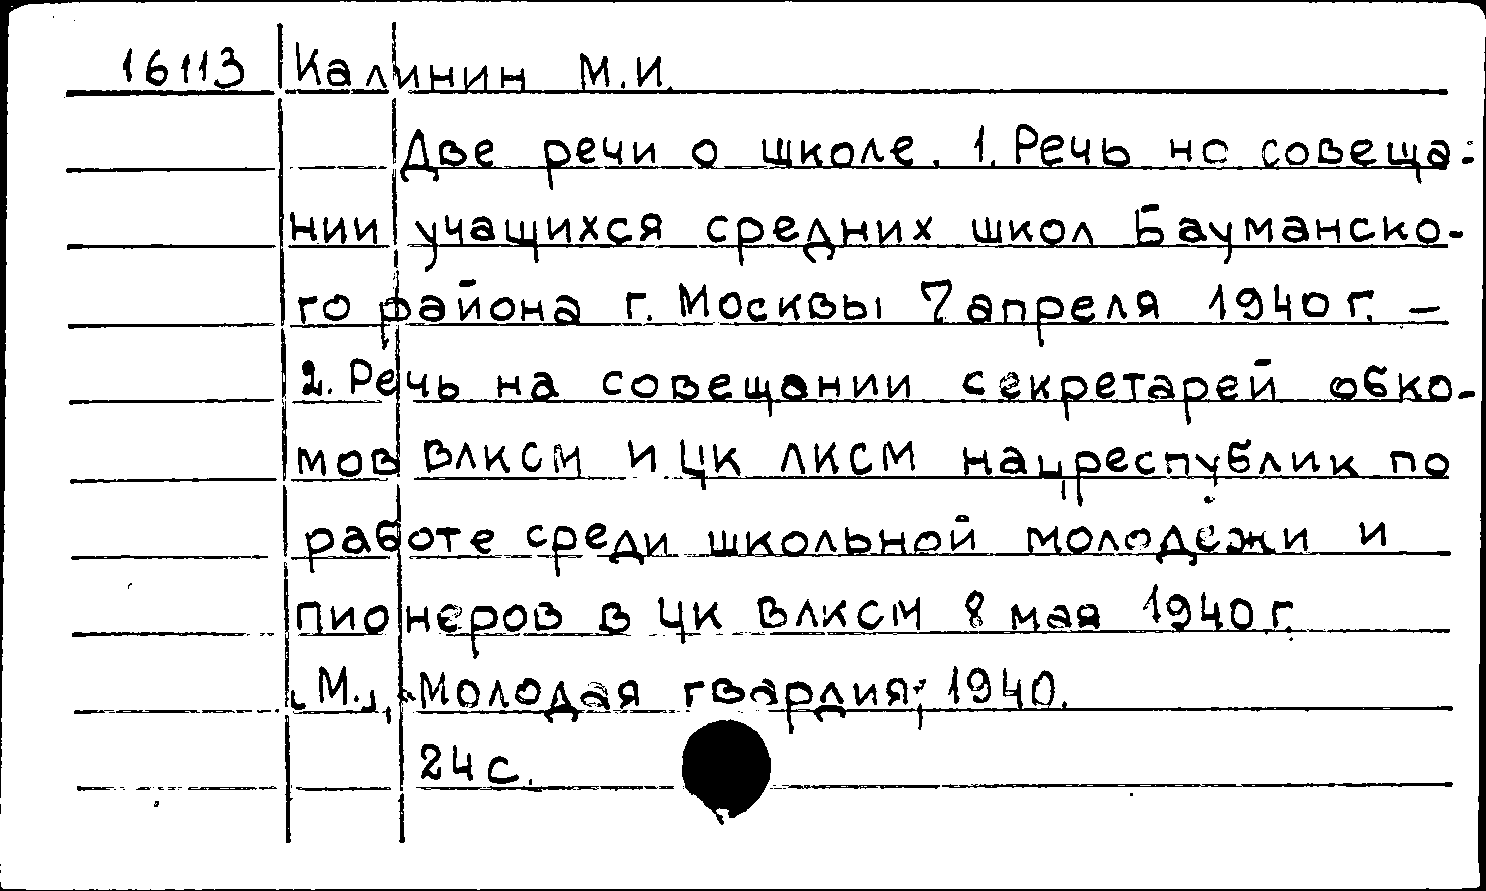 16113 Калинин М.И.
Две речи о школе. 1. Речь на совеща-
нии учащихся средних школ Бауманско-
го района г. Москвы 7 апреля 1940 г. –
2. Речь на совещании секретарей обко-
мов ВЛКСМ и ЦК ЛКСМ нацреспублик по
работе среди школьной молодежи и
пионеров в ЦК ВЛКСМ 8 мая 1940 г.
[М.], "Молодая гвардия", 1940.
24 с.